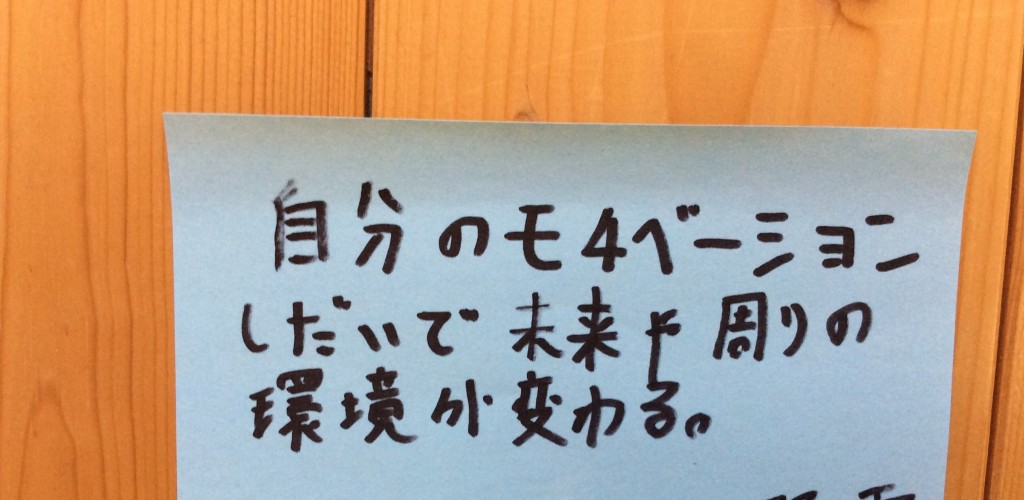 自分のモチベーション
しだいで未来や周りの
環境が変わる。